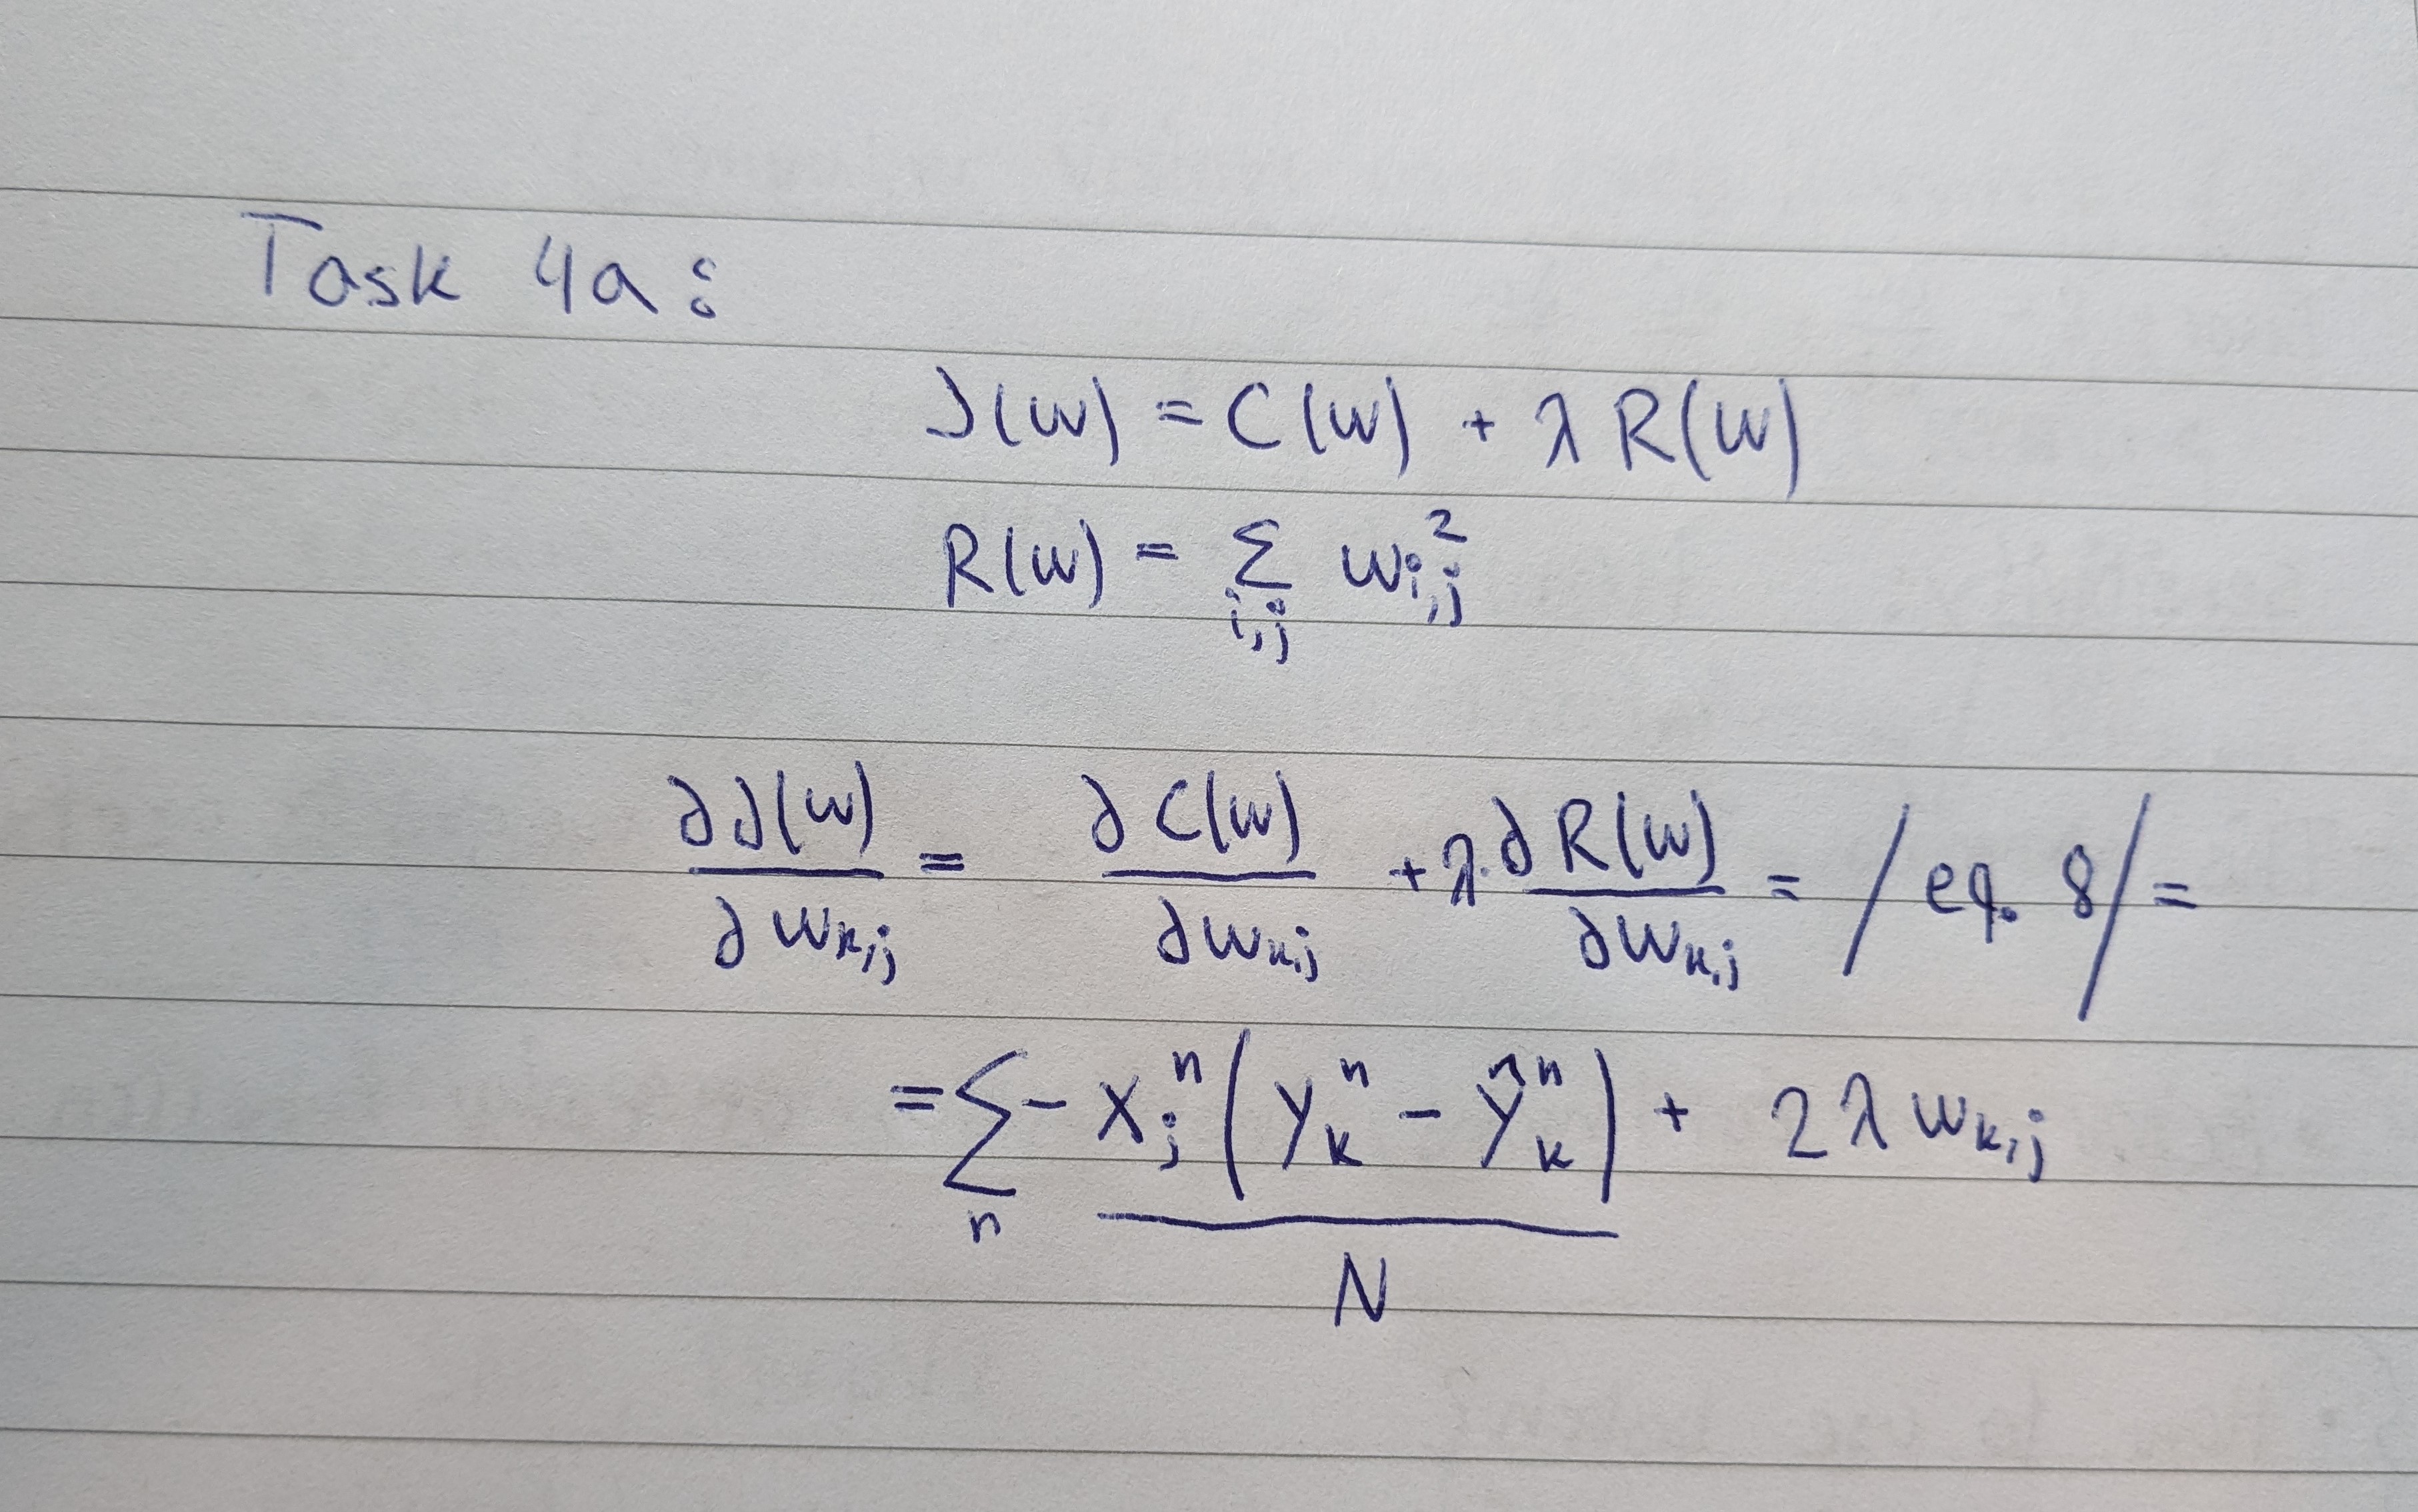 Task 4a:
J(w) = C(w) + λ R(w)
R(w) = Σ_{i,j} w_{i,j}^2
∂J(w)/∂w_{k,j} = ∂C(w)/∂w_{k,j} + λ·∂R(w)/∂w_{k,j} = /eq. 8/ =
= Σ_n - x_j^n (y_k^n - ŷ_k^n)/N + 2λw_{k,j}